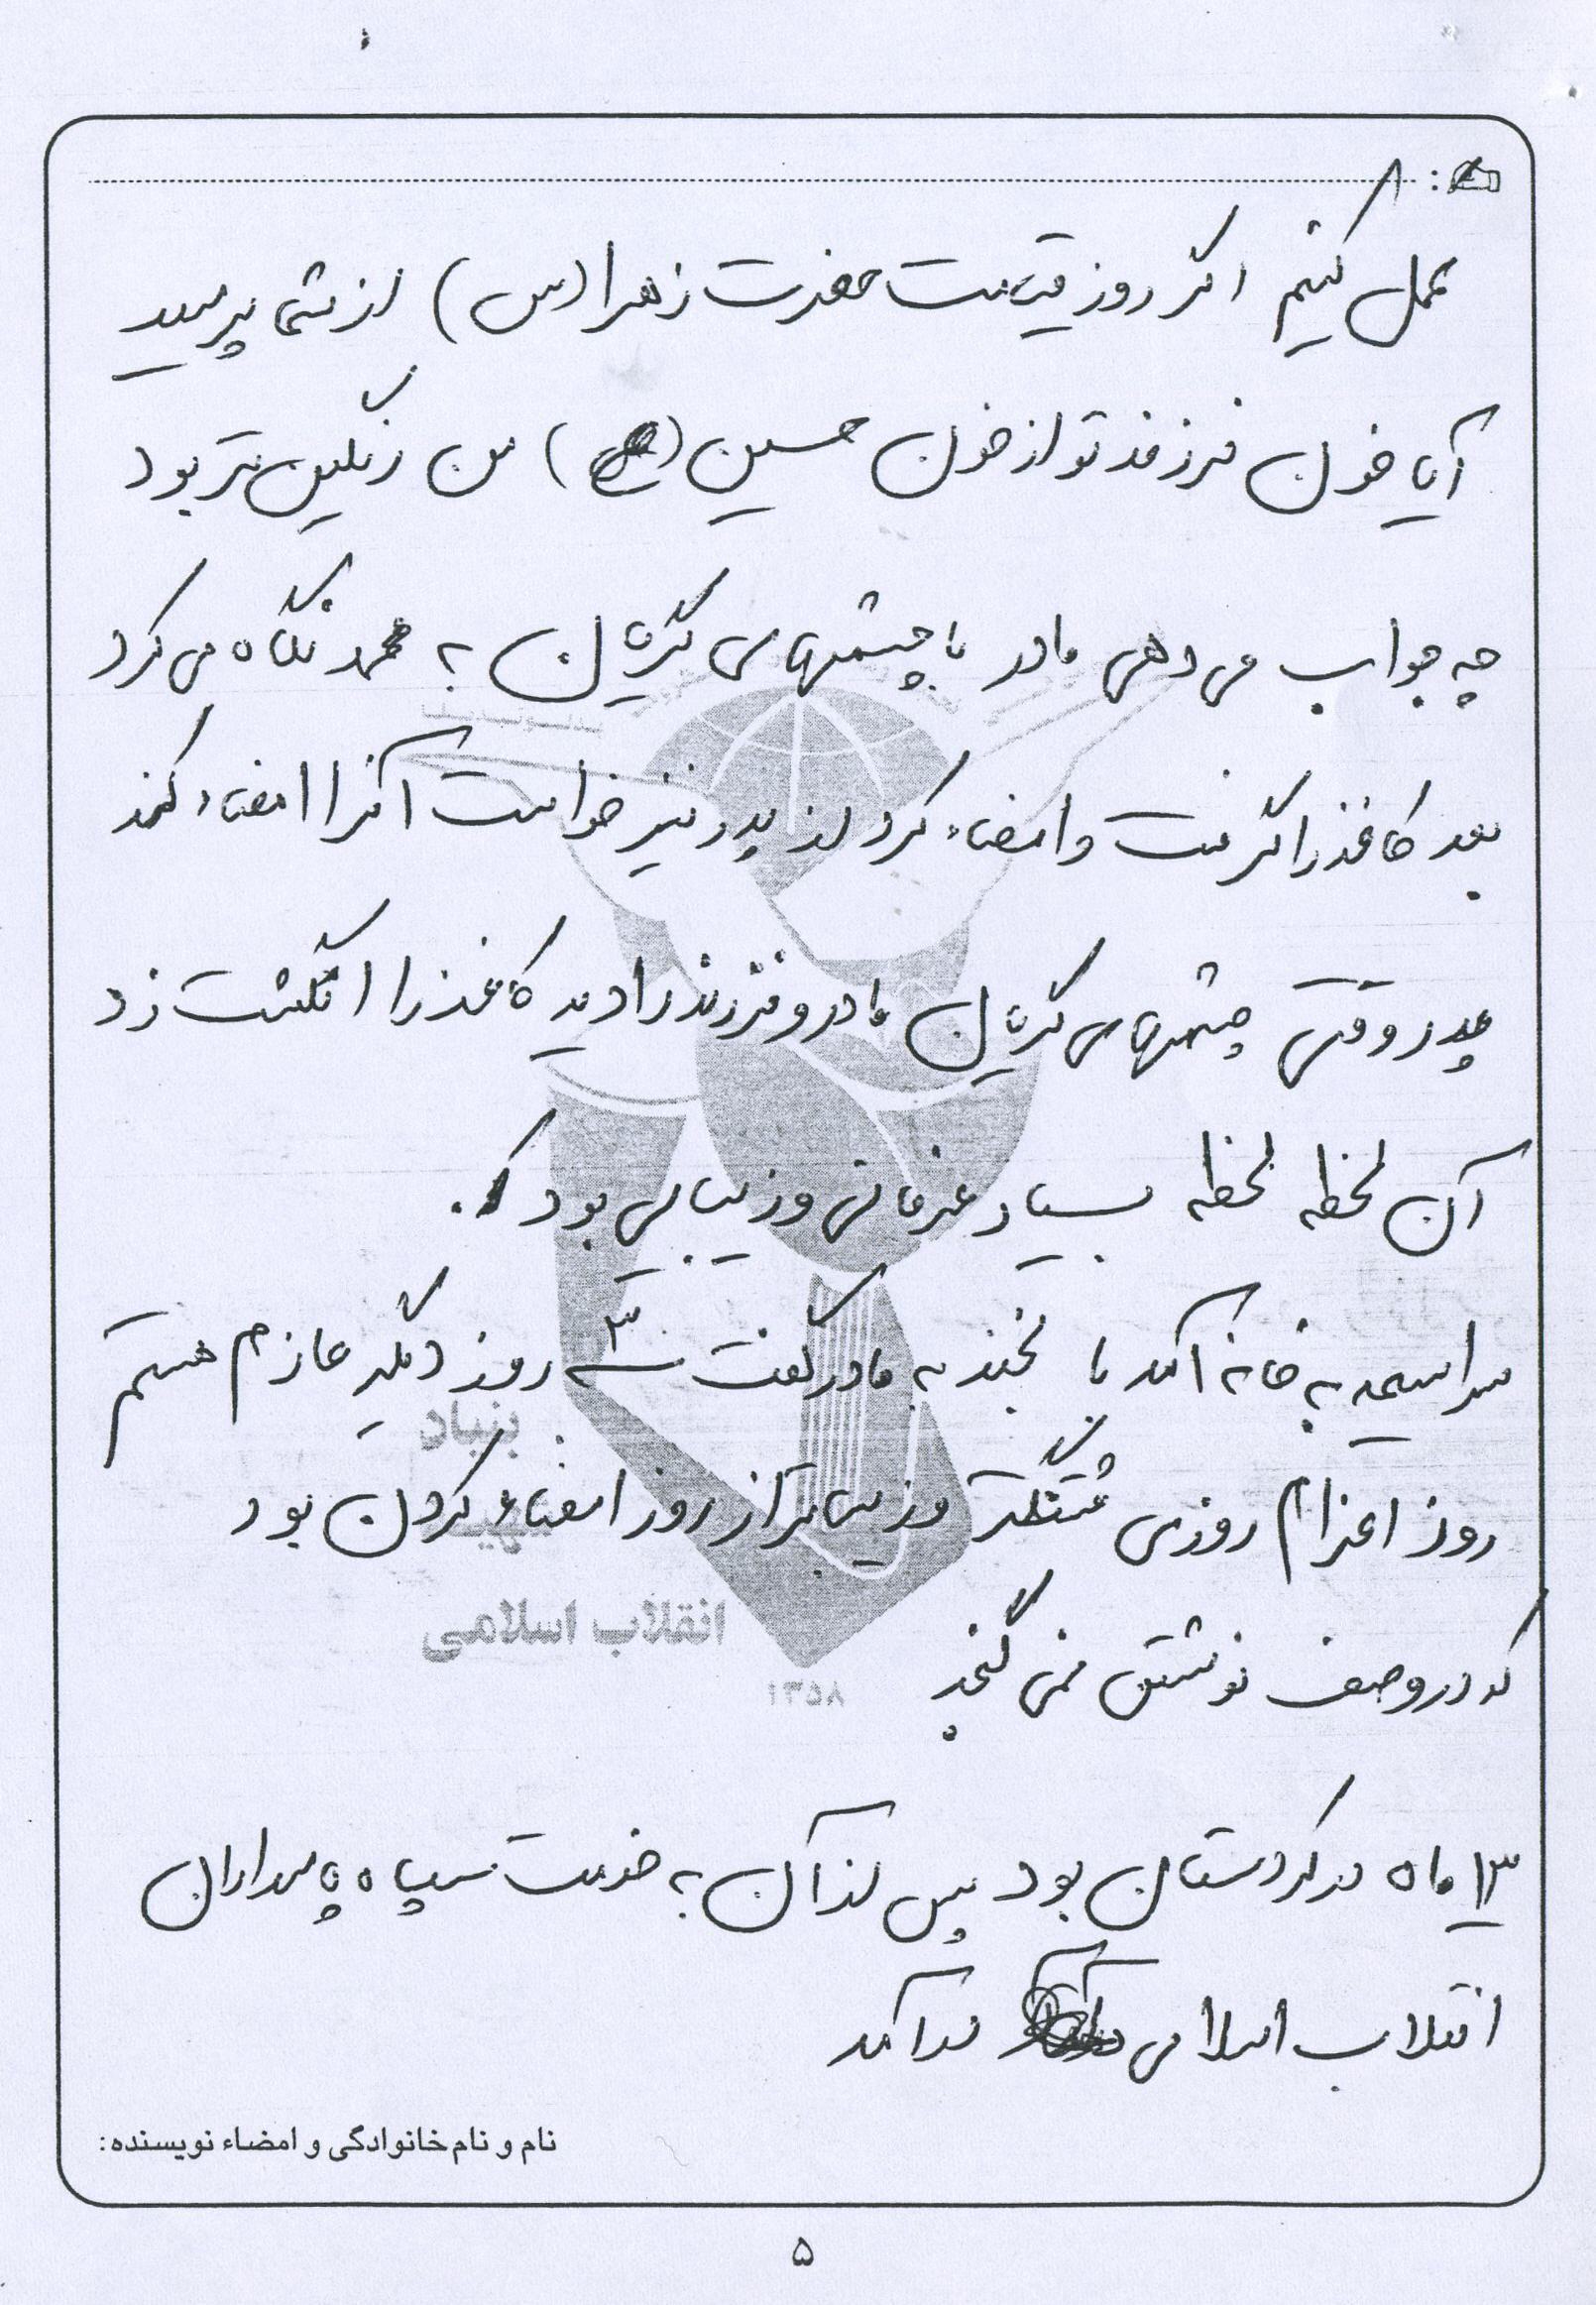 عمل کنیم اگر روز قیامت حضرت زهرا (س) از شما پرسید
آیا خون فرزند تو از خون حسین (ع) من رنگین تر بود
چه جواب می دهی مادر با چشمهای گریان به محمد نگاه می کرد
بعد کاغذ را گرفت و امضاء کرد از پدر نیز خواست آنرا امضاء کند
پدر وقتی چشمهای گریان مادر و فرزند را دید کاغذ را انگشت زد
آن لحظه لحظه بسیار عرفانی و زیبایی بود.
سراسیمه به خانه آمد با لبخند به مادر گفت ۳ روز دیگر عازم هستم
روز اعزام روزی قشنگتر و زیباتر از روز امضاء کردن بود
که در وصف نوشتن نمی گنجد
۱۳ ماه در کردستان بود پس از آن به خدمت سپاه پاسداران
انقلاب اسلامی درآمد
بنیاد
شهید
انقلاب اسلامی
۱۳۵۸
نام و نام خانوادگی و امضاء نویسنده:
۵